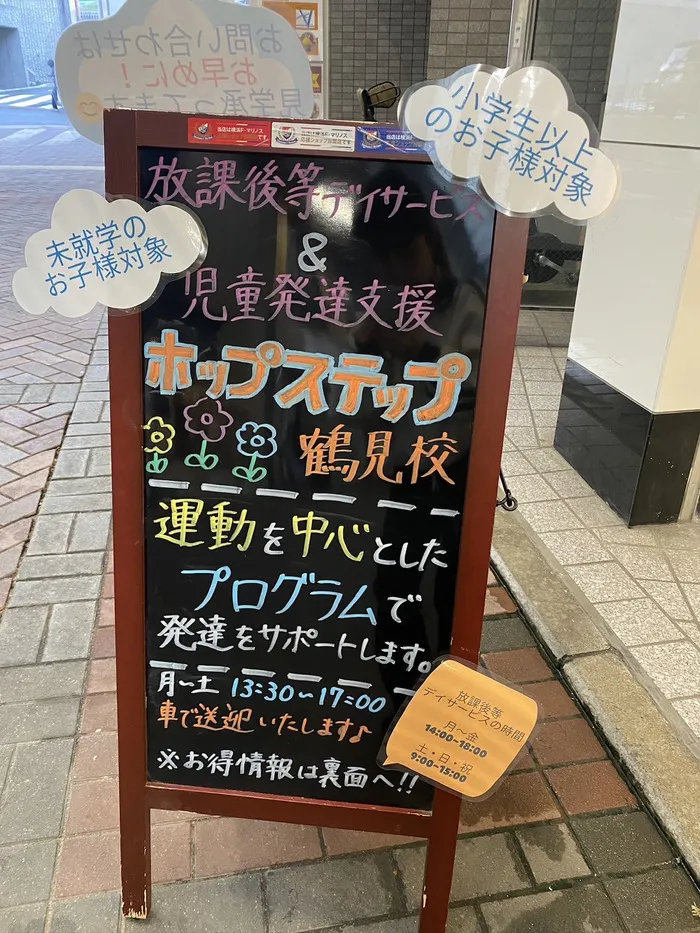 お問い合わせは
お早めに!
見学承ってます
小学生以上
のお子様対象
当店は横浜F・マリノス
です
未就学の
お子様対象
放課後等デイサービス
&
児童発達支援
ホップステップ
鶴見校
運動を中心とした
プログラムで
発達をサポートします。
月～土 13:30～17:00
車で送迎いたします♪
※お得情報は裏面へ!!
放課後等
デイサービスの時間
月～金
14:00~18:00
土・日・祝
9:00~15:00